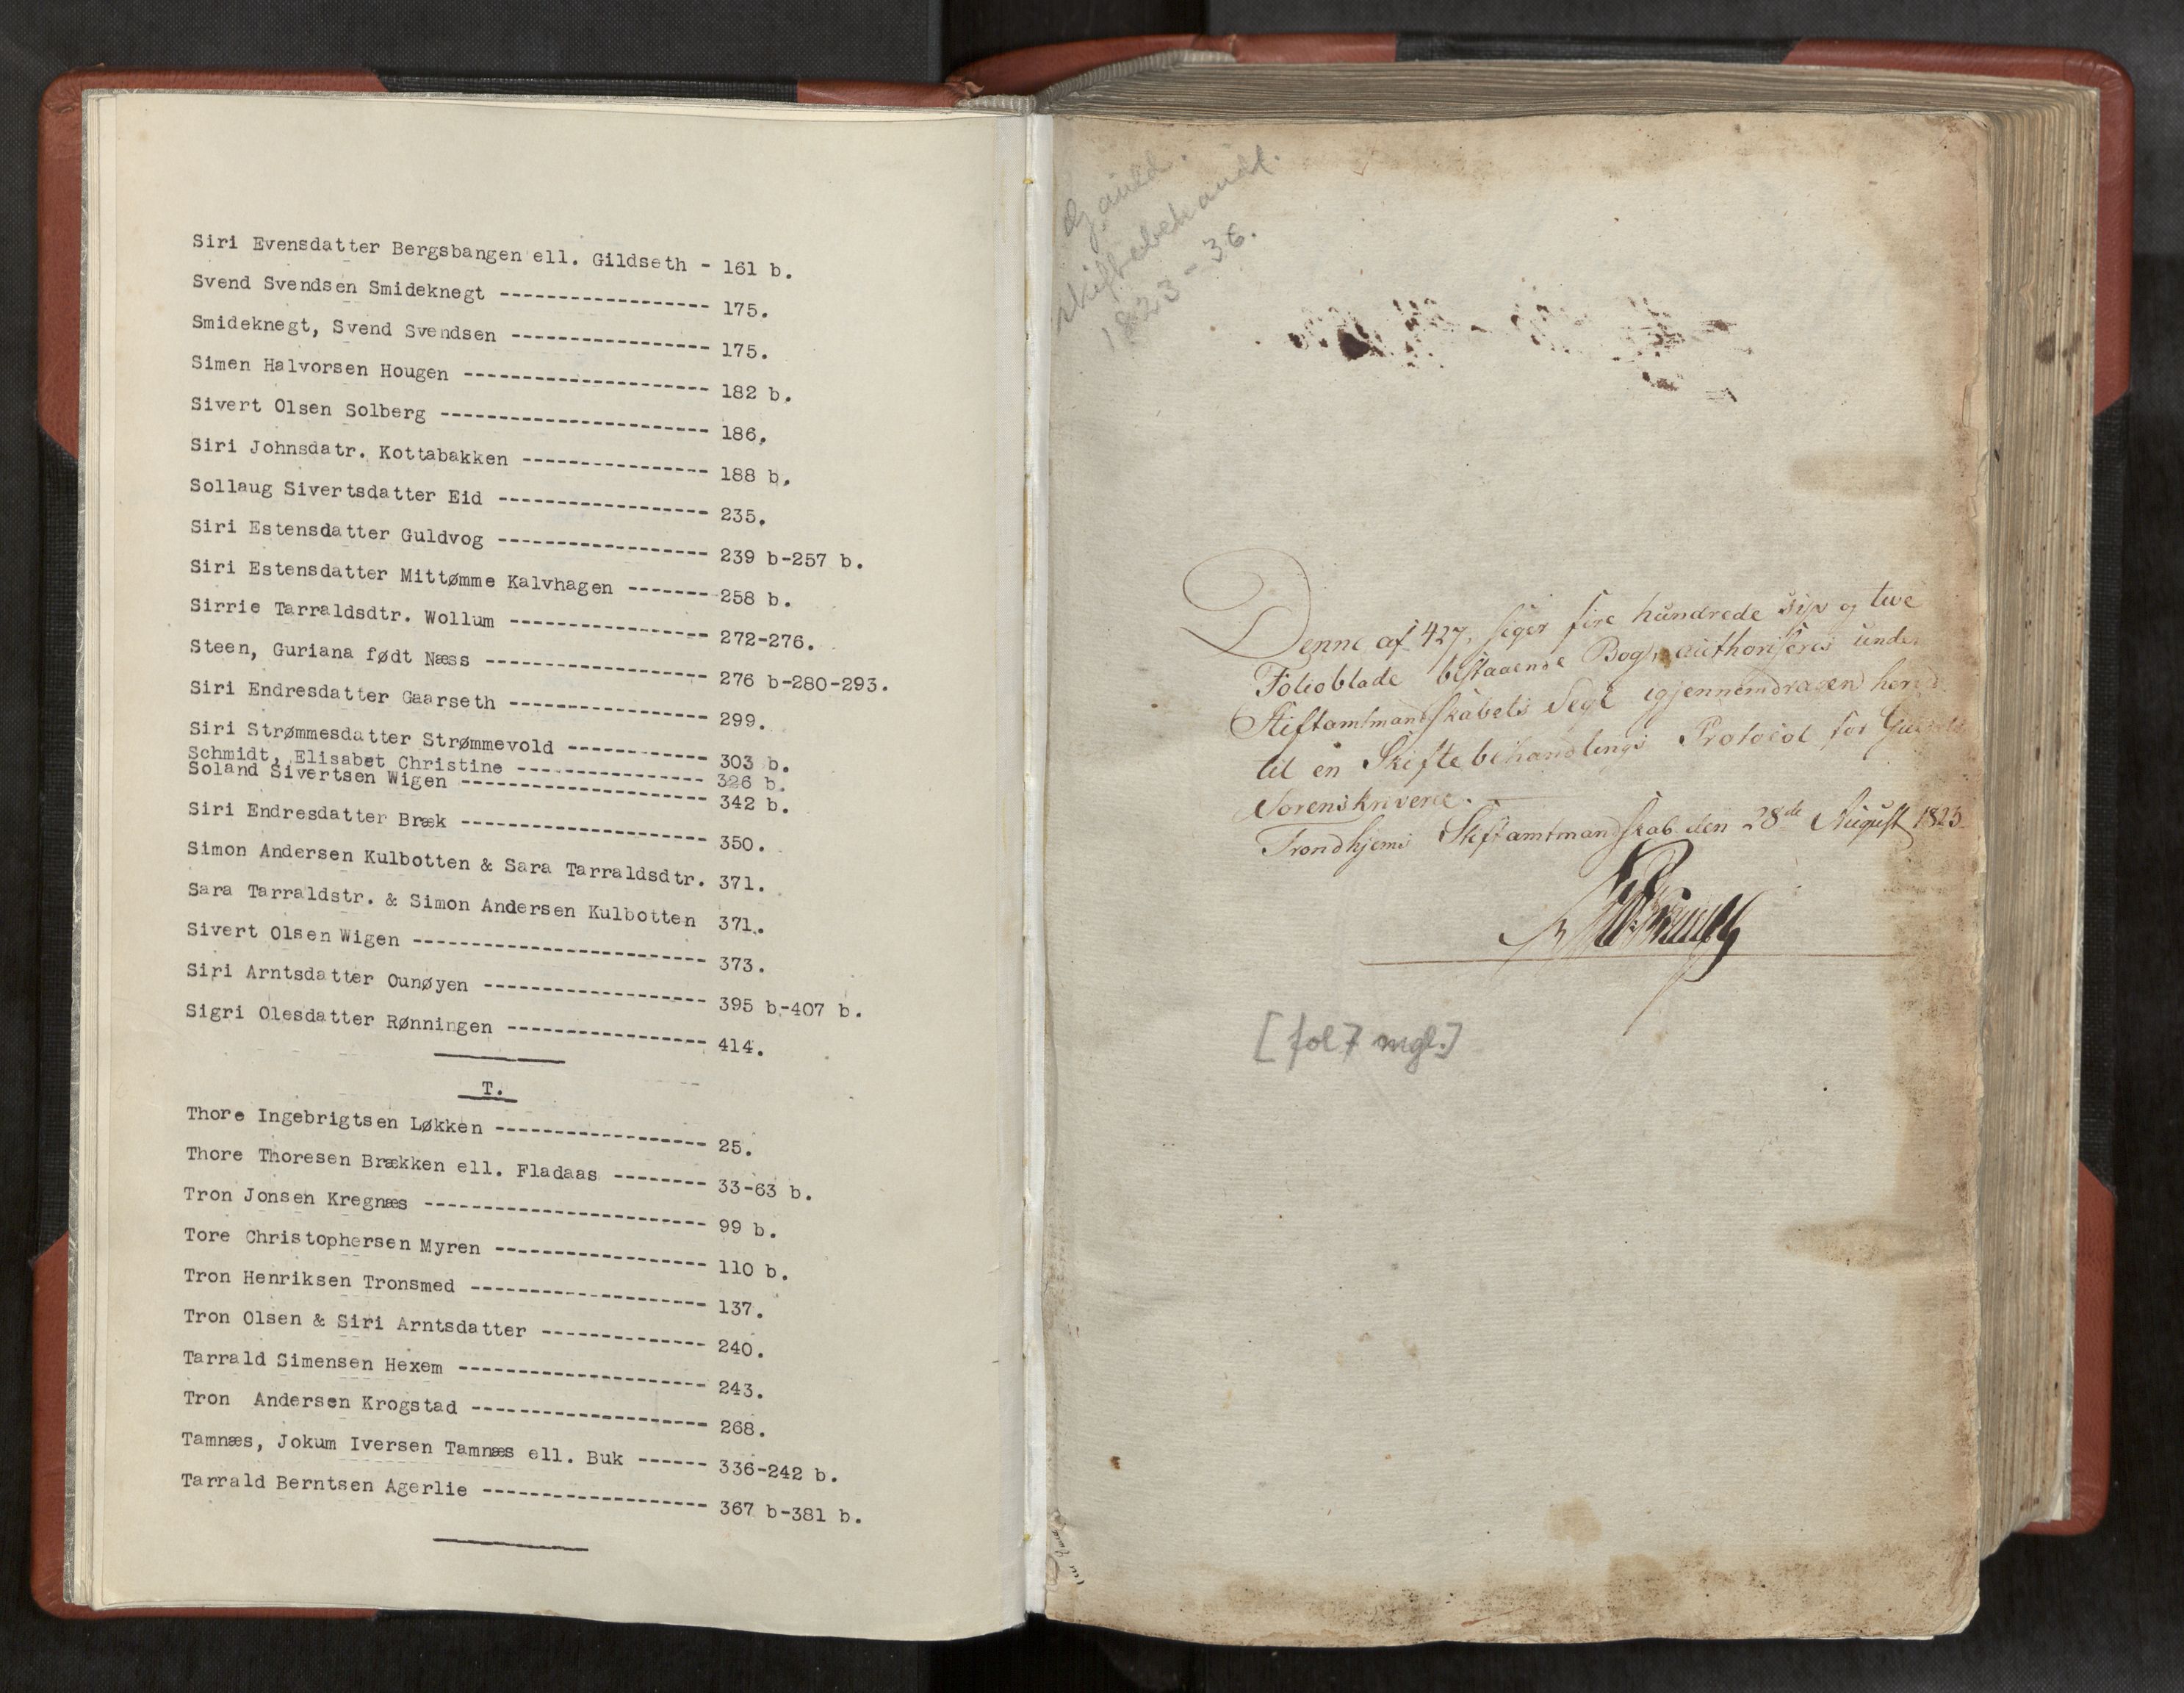 Siri Evensdatter Bergsbangen ell. Gildseth - 161 b.
Svend Svendsen Smideknegt ------------------ 175.
Smideknegt, Svend Svendsen ----------------- 175.
Simen Halvorsen Hougen --------------------- 182 b.
Sivert Olsen Solberg ----------------------- 186.
Siri Johnsdatr. Kottabakken ---------------- 188 b.
Sollaug Sivertsdatter Eid ------------------ 235.
Siri Estensdatter Guldvog ------------------ 239 b-257 b.
Siri Estensdatter Mittømme Kalvhagen --------258 b.
Sirrie Tarraldsdtr. Wollum ----------------- 272-276.
Steen, Guriana født Næss ------------------- 276 b-280-293.
Siri Endresdatter Gaarseth ----------------- 299.
Siri Strømmesdatter Strømmevold ------------ 303 b.
Schmidt, Elisabet Christine ---------------- 326 b.
Soland Sivertsen Wigen --------------------- 342 b.
Siri Endresdatter Bræk --------------------- 350.
Simon Andersen Kulbotten & Sara Tarraldsdtr. 371.
Sara Tarraldstr. & Simon Andersen Kulbotten 371.
Sivert Olsen Wigen ------------------------- 373.
Siri Arntsdatter Ounøyen ------------------- 395 b-407 b.
Sigri Olesdatter Rønningen ----------------- 414.
T.
Thore Ingebrigtsen Løkken ------------------ 25.
Thore Thoresen Brækken ell. Fladaas -------- 33-63 b.
Tron Jonsen Kregnæs ------------------------ 99 b.
Tore Christophersen Myren ------------------ 110 b.
Tron Henriksen Tronsmed -------------------- 137.
Tron Olsen & Siri Arntsdatter -------------- 240.
Tarrald Simensen Hexem --------------------- 243.
Tron  Andersen Krogstad -------------------- 268.
Tamnæs, Jokum Iversen Tamnæs ell. Buk ------ 336-242 b.
Tarrald Berntsen Agerlie ------------------- 367 b-381 b.
Gauld.
Skiftebehandl.
1823-36.
Denne af 427, siger fire hundrede syv og tive
Folioblade bestaaende Bog, authoriseres under
Stiftamtmandskabets Segl igjennemdragen
til en Skiftebehandlings Protocol for
Sorenskriverie.
Trondhjems Stiftamtmandskab den 28de August 1823.
[fol 7 mgl.]